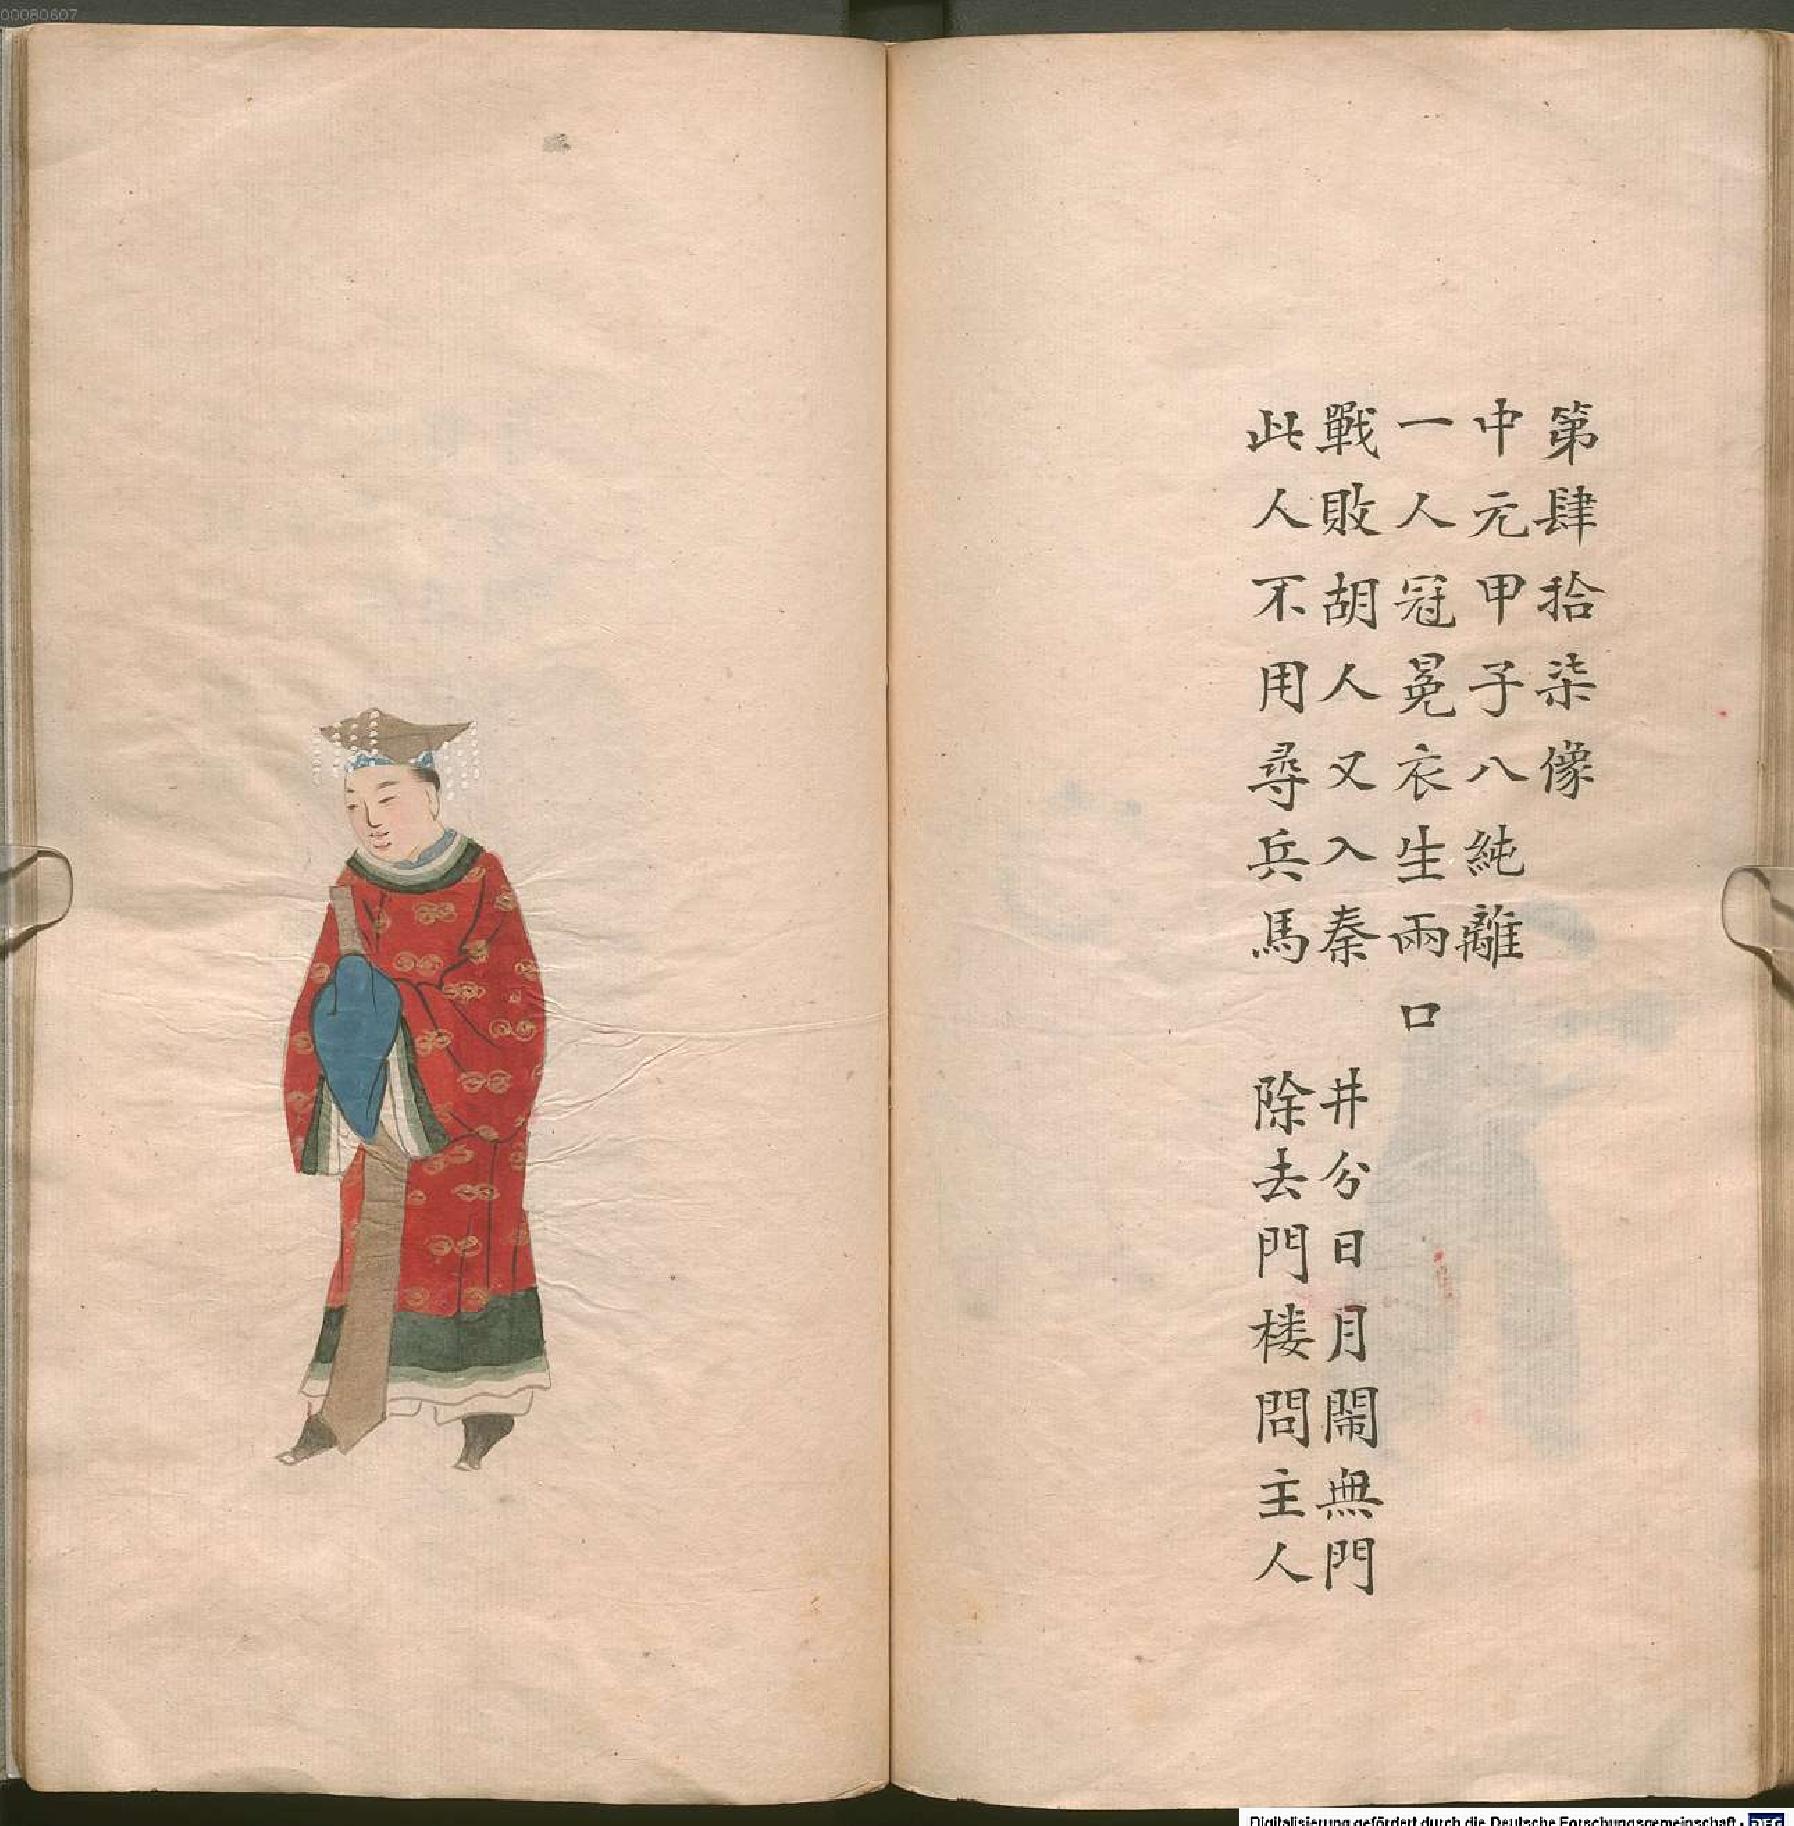 00080607
第肆拾柒像
中元甲子八純離
一人冠冕衣生兩口
戰敗胡人又入秦 井分日月鬧無門
此人不用尋兵馬 除去門楼問主人
Digitalisierung gefördert durch die Deutsche Forschungsgemeinschaft - DFG